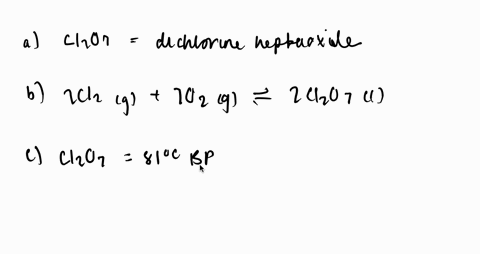 a) Cl2O7 = dichlorine heptaoxide
b) 2Cl2 (g) + 7O2 (g) ⇌ 2Cl2O7 (l)
c) Cl2O7 = 81°C BP